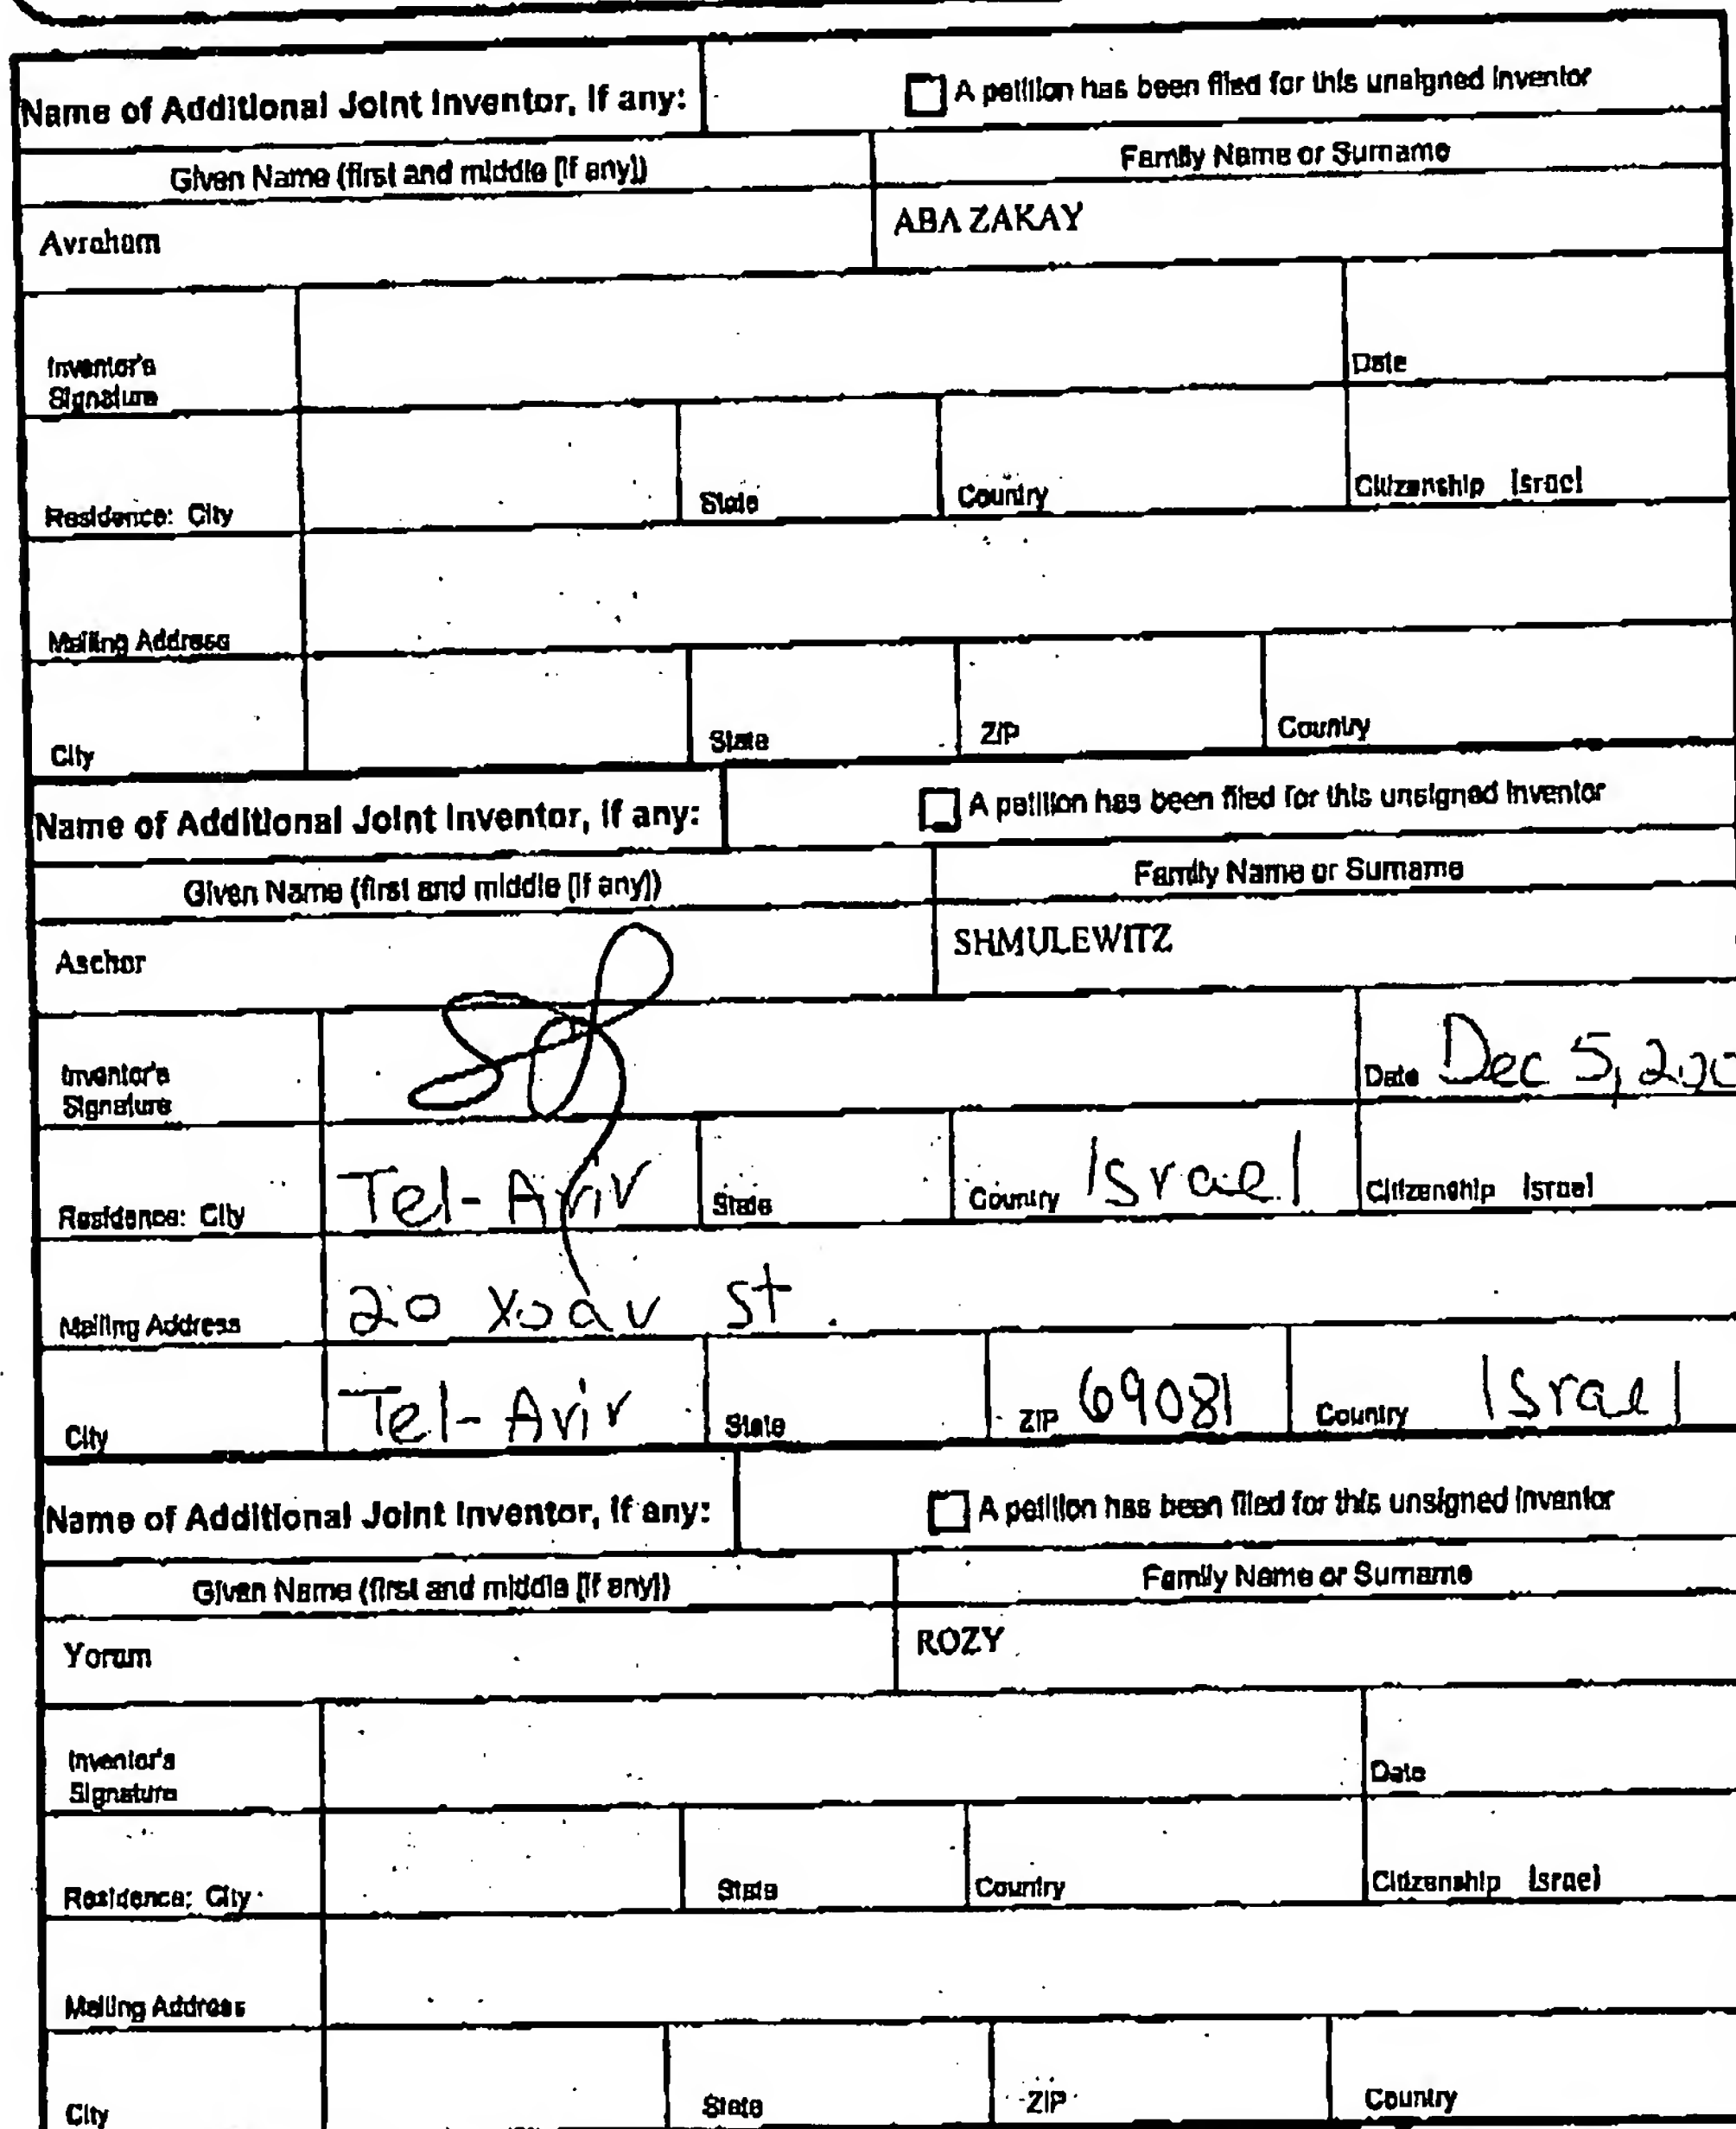 Name of Additional Joint Inventor, if any: A petition has been filed for this unsigned inventor
Given Name (first and middle [if any]) Family Name or Surname
Avraham ABA ZAKAY
Inventor's
Signature Date
Residence: City State Country Citizenship Israel
Mailing Address
City State ZIP Country
Name of Additional Joint Inventor, if any: A petition has been filed for this unsigned inventor
Given Name (first and middle [if any]) Family Name or Surname
Ascher SHMULEWITZ
Inventor's
Signature Date Dec 5, 200
Residence: City Tel-Aviv State Country Israel Citizenship Israel
Mailing Address 20 Yoav st.
City Tel-Aviv State ZIP 69081 Country Israel
Name of Additional Joint Inventor, if any: A petition has been filed for this unsigned inventor
Given Name (first and middle [if any]) Family Name or Surname
Yoram ROZY
Inventor's
Signature Date
Residence: City State Country Citizenship Israel
Mailing Address
City State ZIP Country